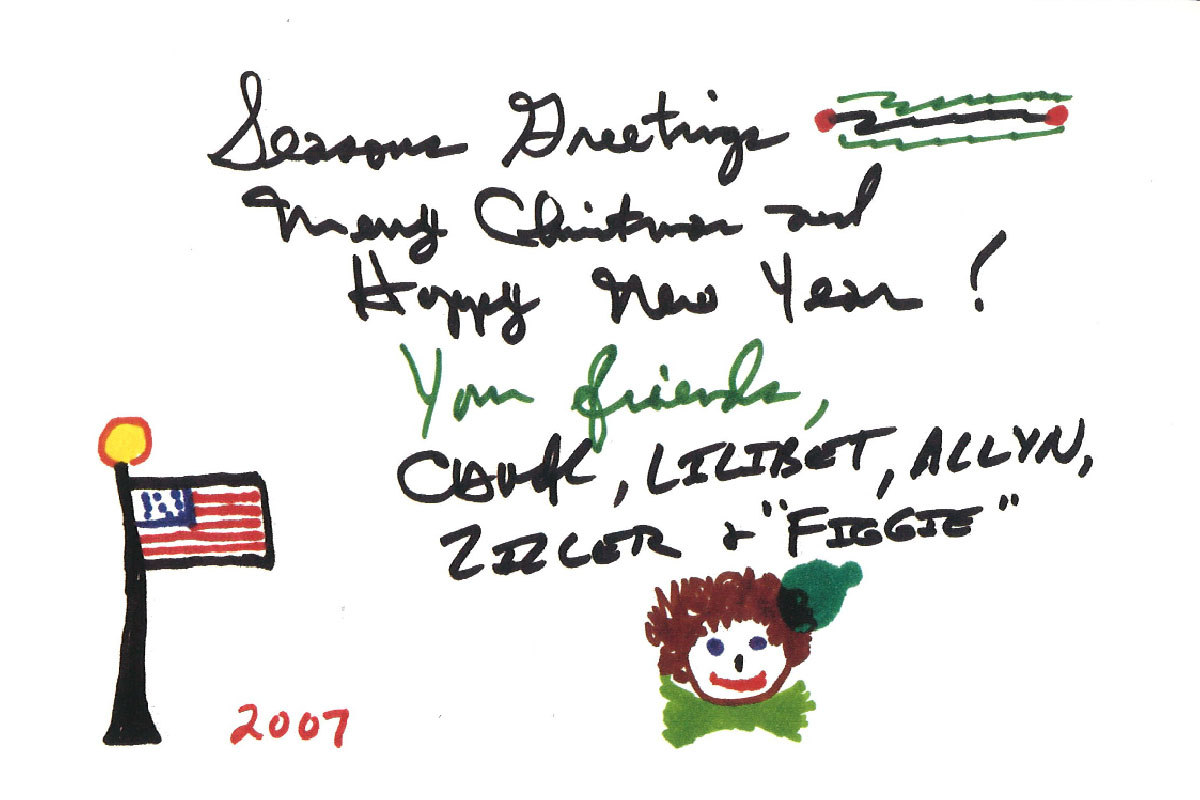 Seasons Greetings
Merry Christmas and
Happy New Year!
Your friends,
CHUCK, LILIBET, ALLYN,
ZIZLER + "FIGGIE"
2007